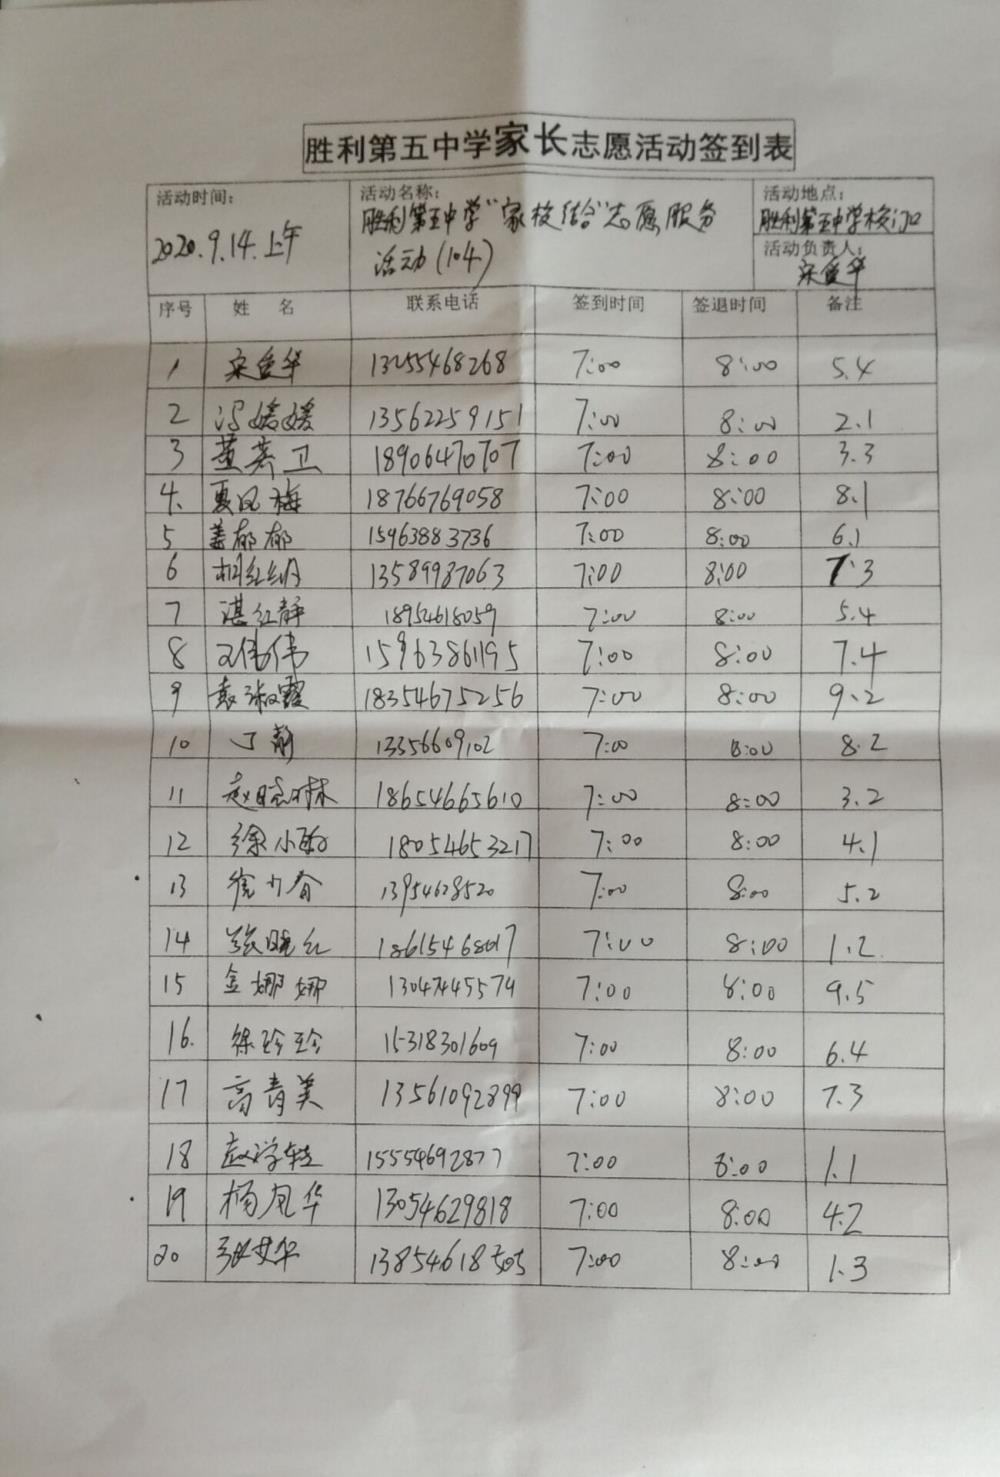 胜利第五中学家长志愿活动签到表
活动时间: 活动名称: 活动地点:
2020.9.14.上午 胜利第五中学"家校结合"志愿服务 胜利第五中学校门口
活动(104) 活动负责人:
宋爱华
序号 姓 名 联系电话 签到时间 签退时间 备注
1 宋爱华 13255468268 7:00 8:00 5.4
2 冯媛媛 13562259151 7:00 8:00 2.1
3 董燕卫 18906470707 7:00 8:00 3.3
4. 夏风梅 18766769058 7:00 8:00 8.1
5 姜郁郁 15963883736 7:00 8:00 6.1
6 相红娟 13589987063 7:00 8:00 7.3
7 湛红静 18954618059 7:00 8:00 5.4
8 伟伟 15963861195 7:00 8:00 7.4
9 袁淑霞 18354675256 7:00 8:00 9.2
10 丁静 13356609102 7:00 8:00 8.2
11 赵晓林 18654665610 7:00 8:00 3.2
12 徐小敏 18054653217 7:00 8:00 4.1
13 13954628520 7:00 8:00 5.2
14 张晓红 18615468017 7:00 8:00 1.2
15 金娜娜 13047445574 7:00 8:00 9.5
16. 徐玲玲 15318301609 7:00 8:00 6.4
17 高青美 13561092899 7:00 8:00 7.3
18 赵学 15554692877 7:00 8:00 1.1
19 杨凤华 13054629818 7:00 8:00 4.2
20 13854618505 7:00 8:00 1.3